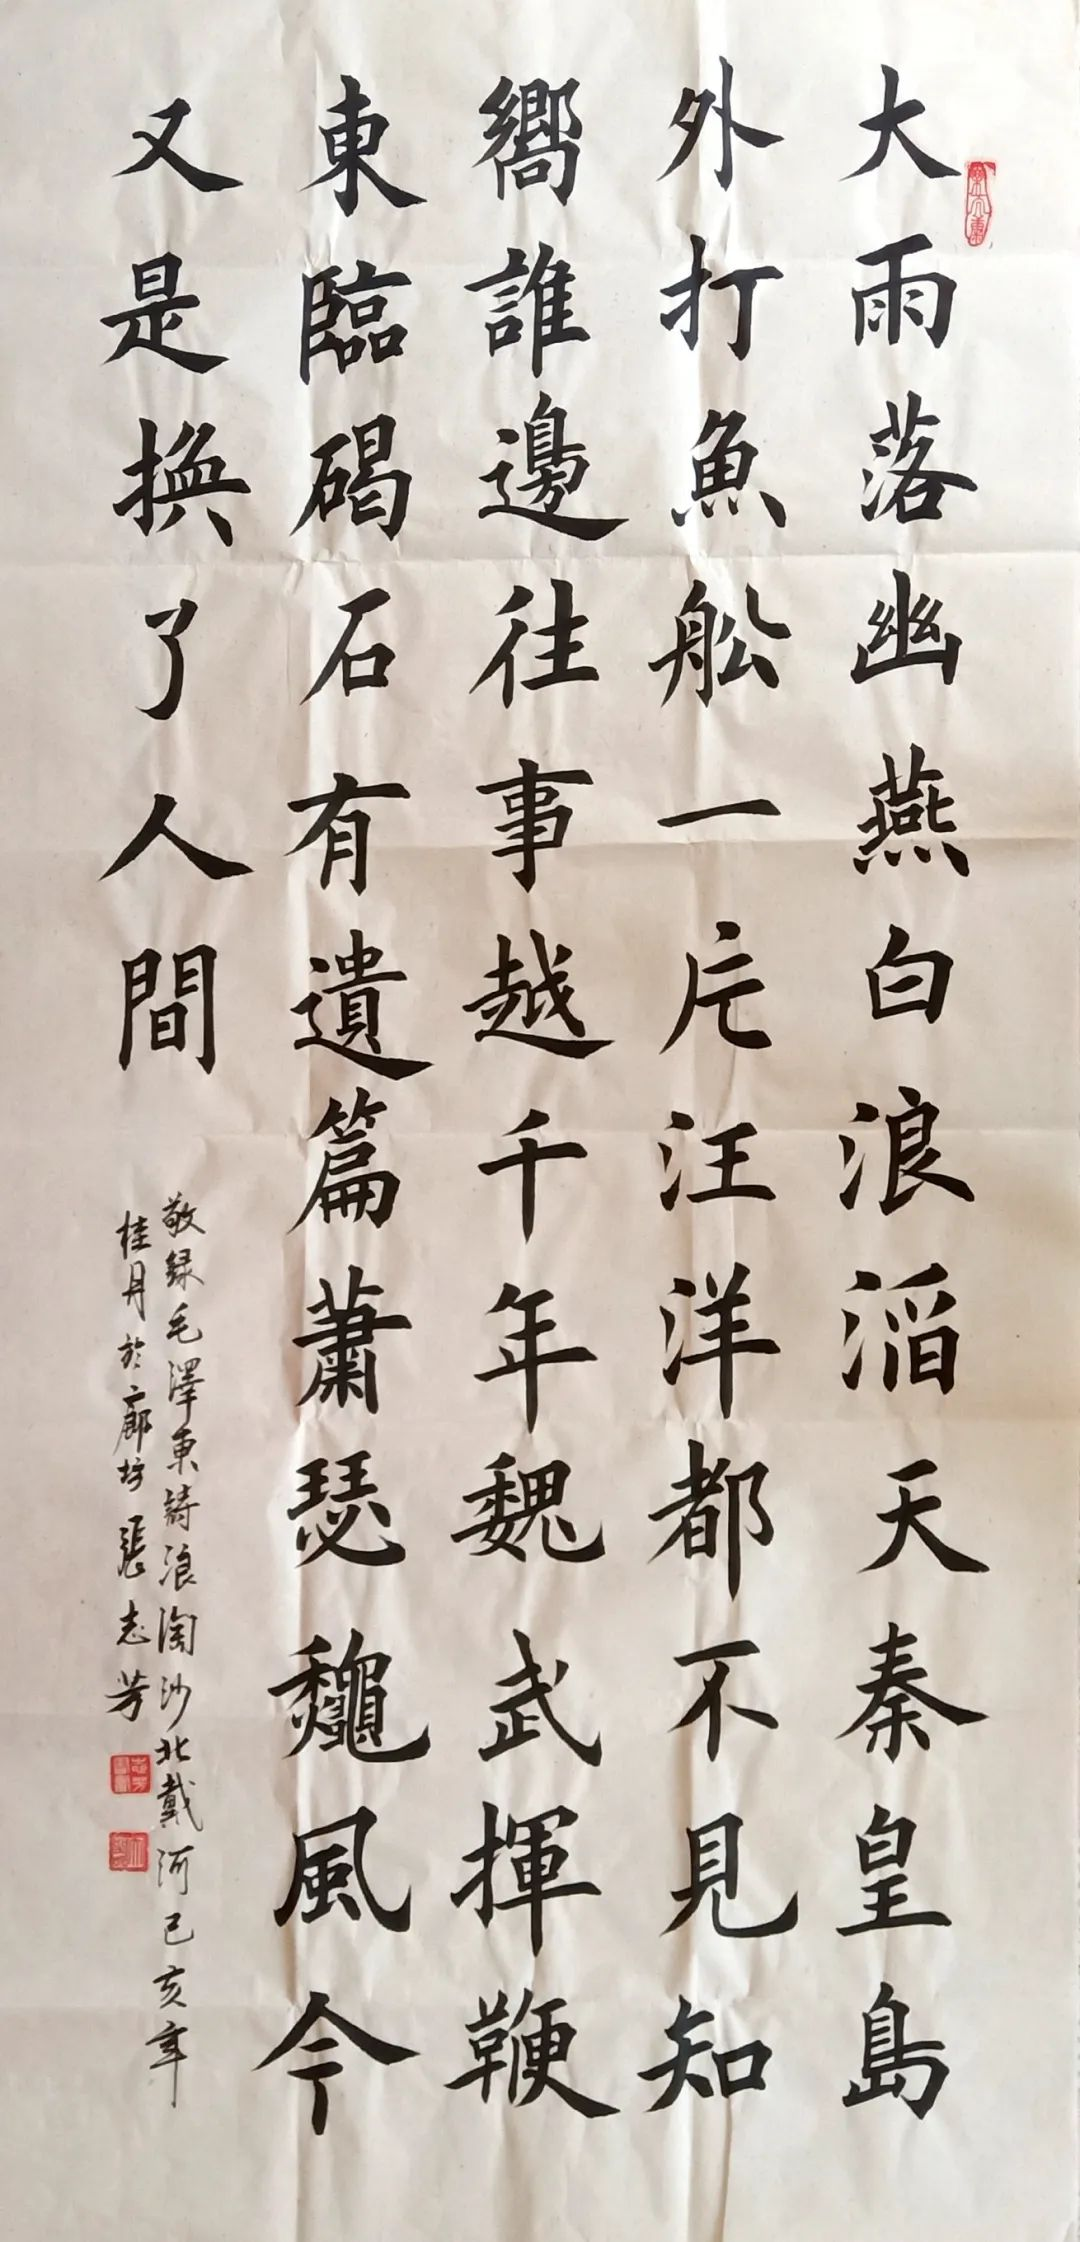 大雨落幽燕白浪滔天秦皇島
外打魚舩一片汪洋都不見知
嚮誰邊往事越千年魏武揮鞭
東臨碣石有遺篇蕭瑟龝風今
又是換了人間
敬録毛澤東詩浪淘沙北戴河己亥年
桂月於廊坊張志芳